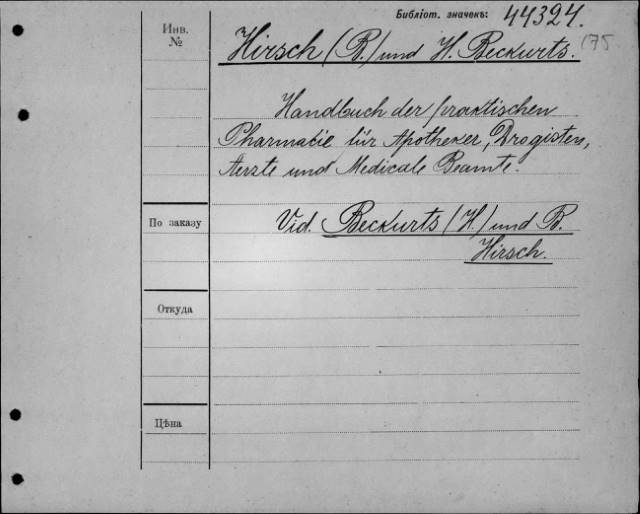 Библіот. значекъ: 44324.
175
Инв.
№
Hirsch (B.) und H. Beckurts.
Handbuch der praktischen
Pharmacie für Apotheker, Drogisten,
Aerzte und Medicale Beamte.
По заказу
Vid. Beckurts (H.) und B.
Hirsch.
Откуда
Цѣна